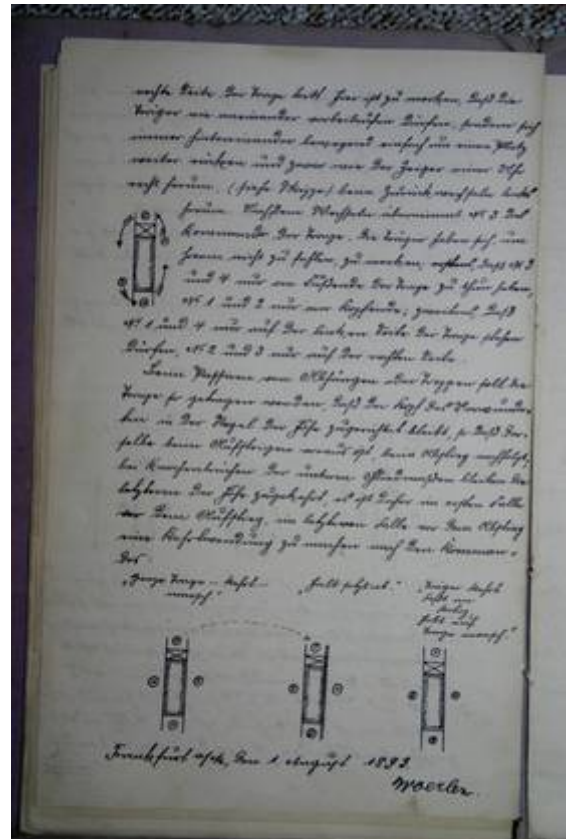 rechte Seite der Trage tritt. Hier ist zu merken, daß die
Träger nie aneinander vorbeilaufen dürfen, sondern sich
immer hintereinander bewegend einfach um einen Platz
weiter rücken und zwar wie der Zeiger einer Uhr
rechts herum. (siehe Skizze) beim Zurückwechseln links
herum. Nach dem Wechseln übernimmt No 3 das
Kommando der Trage. Die Träger haben sich, um
hierin nicht zu fehlen, zu merken, erstens, daß No 3
und 4 nur am Fußende der Trage zu thun haben,
No 1 und 2 nur am Kopfende; zweitens, daß
No 1 und 4 nur auf der linken Seite der Trage stehen
dürfen, No 2 und 3 nur auf der rechten Seite.
Beim Passieren von Abhängen oder Treppen soll die
Trage so getragen werden, daß der Kopf des Verwunde-
ten in der Regel der Höhe zugerichtet bleibt, so daß der-
selbe beim Aufsteigen voraus ist, beim Abstieg nachfolgt;
bei Knochenbrüchen der unteren Gliedmaßen bleiben die
letzteren der Höhe zugekehrt, es ist daher im ersten Falle
vor dem Aufstieg, im letzteren Falle vor dem Abstieg
eine Kehrtwendung zu machen nach den Komman-
dos:
„Ganze Trage – kehrt – marsch." „Halt setzt ab." „Träger kehrt
faßt an
hebt auf
Trage marsch."
Frankfurt a/M, den 1 August 1893.
Woerlen.